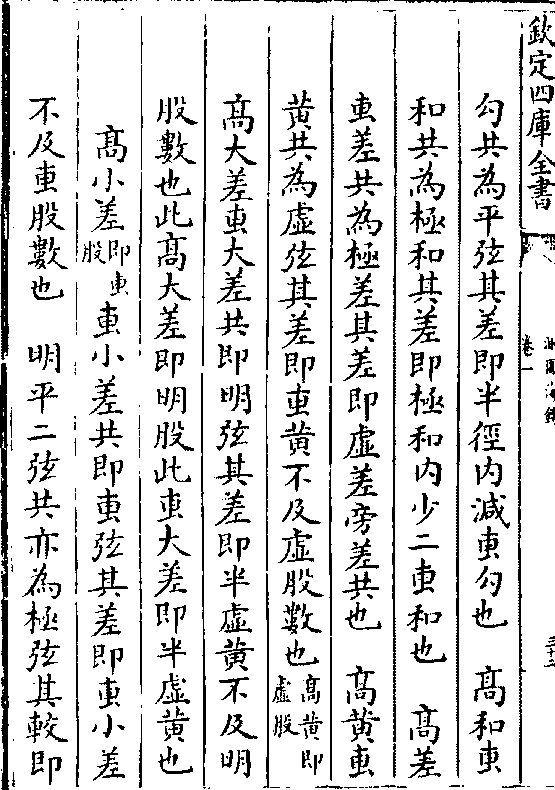 欽定四庫全書
卷一
勾共為平弦其差即半徑内減叀勾也　髙和叀
和共為極和其差即極和内少二叀和也　髙差
叀差共為極差其差即虚差旁差共也　髙黄叀
黄共為虚弦其差即叀黄不及虚股數也髙黄即虚股
髙大差叀大差共即明弦其差即半虚黄不及明
股數也此髙大差即明股此叀大差即半虚黄也
髙小差即叀股叀小差共即叀弦其差即叀小差
不及叀股數也　明平二弦共亦為極弦其較即